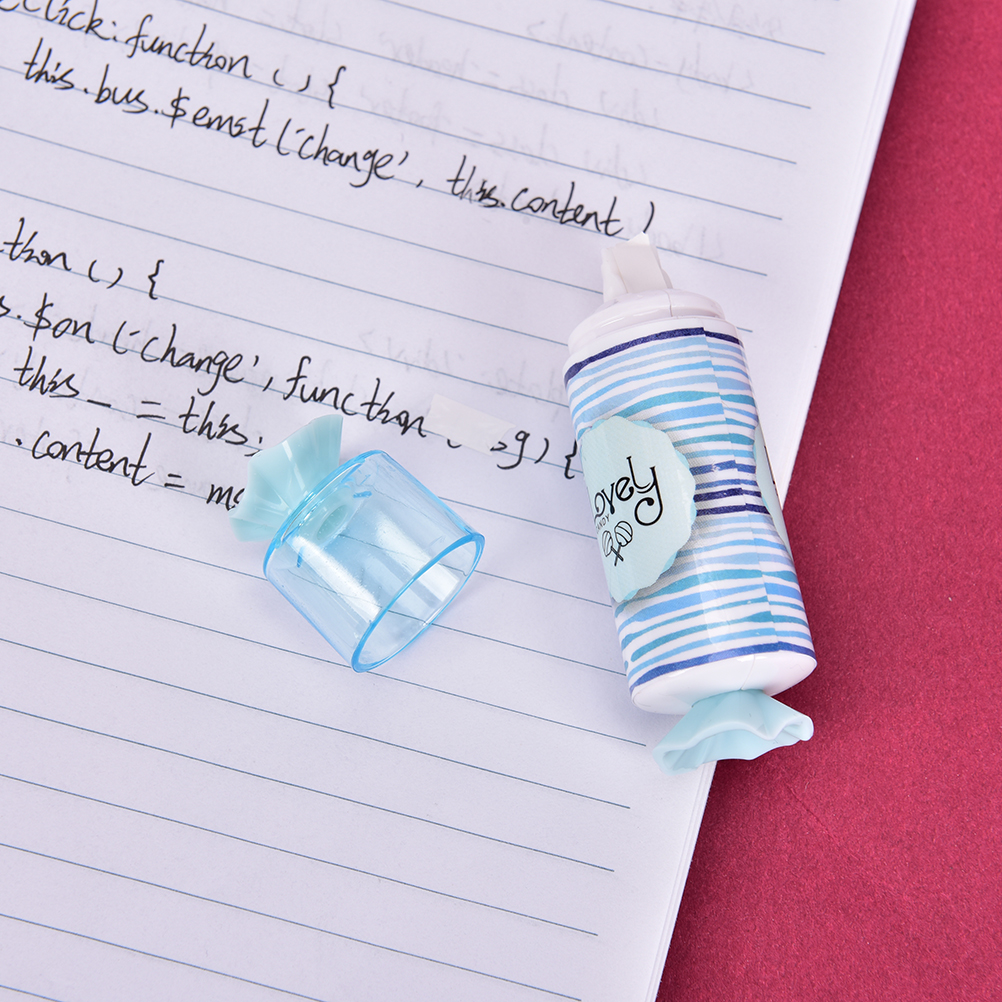 click: function () {
this.bus.$emit('change', this.content)
() {
.$on('change', function ( sg) {
this_ = this.
.content = ms
Lovely
CANDY